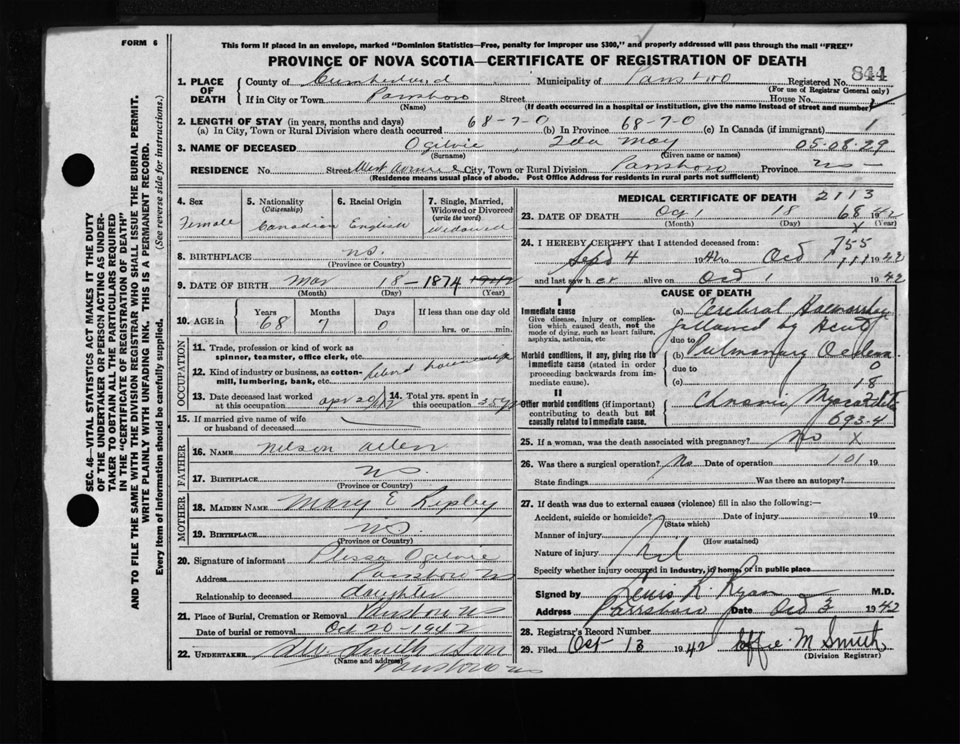 FORM 6
This form if placed in an envelope, marked "Dominion Statistics—Free, penalty for improper use $300," and properly addressed will pass through the mail "FREE"
PROVINCE OF NOVA SCOTIA—CERTIFICATE OF REGISTRATION OF DEATH
844
1. PLACE OF DEATH
County of Cumberland Municipality of Parrsboro Registered No.
(For use of Registrar General only)
If in City or Town Parrsboro Street House No.
(Name) (If death occurred in a hospital or institution, give the name instead of street and number)
2. LENGTH OF STAY (in years, months and days)
(a) In City, Town or Rural Division where death occurred 68-7-0 (b) In Province 68-7-0 (c) In Canada (if immigrant)
3. NAME OF DECEASED Ogilvie, Ida May 05-08-29
(Surname) (Given name or names)
RESIDENCE No. Street West Avenue City, Town or Rural Division Parrsboro Province NS
(Residence means usual place of abode. Post Office Address for residents in rural parts not sufficient)
4. Sex Female
5. Nationality (Citizenship) Canadian
6. Racial Origin English
7. Single, Married, Widowed or Divorced (write the word) Widowed
8. BIRTHPLACE NS.
(Province or Country)
9. DATE OF BIRTH Mar 18 - 1874
(Month) (Day) (Year)
10. AGE in Years Months Days If less than one day
68 7 0 hrs. or min.
OCCUPATION
11. Trade, profession or kind of work as spinner, teamster, office clerk, etc.
12. Kind of industry or business, as cotton-mill, lumbering, bank, etc.
13. Date deceased last worked at this occupation
14. Total yrs. spent in this occupation
15. If married give name of wife or husband of deceased
FATHER
16. NAME Nelson Allen
17. BIRTHPLACE NS.
(Province or Country)
MOTHER
18. MAIDEN NAME Mary E Ripley
19. BIRTHPLACE NS.
(Province or Country)
20. Signature of informant Ogilvie
Address Parrsboro NS
Relationship to deceased daughter
21. Place of Burial, Cremation or Removal NS
Date of burial or removal Oct 20-1942
22. UNDERTAKER Smith & Son
(Name and address)
Parrsboro NS
MEDICAL CERTIFICATE OF DEATH 2113
23. DATE OF DEATH 18
(Month) (Day) (Year)
24. I HEREBY CERTIFY that I attended deceased from:
Sept 4 1942 to
and last saw her alive on 1942
CAUSE OF DEATH
I
Immediate cause
Give disease, injury or complication which caused death, not the mode of dying, such as heart failure, asphyxia, asthenia, etc
(a) Cerebral Haemorrhage
followed by Acute
due to
Morbid conditions, if any, giving rise to immediate cause (stated in order proceeding backwards from immediate cause).
(b) Pulmonary Oedema
due to 0
(c) 18
II
Other morbid conditions (if important) contributing to death but not causally related to immediate cause.
Chronic Myocarditis
093-4
25. If a woman, was the death associated with pregnancy? No X
26. Was there a surgical operation? No Date of operation 101 19
State findings Was there an autopsy?
27. If death was due to external causes (violence) fill in also the following:—
Accident, suicide or homicide? Date of injury 19
(State which)
Manner of injury
(How sustained)
Nature of injury Nil
Specify whether injury occurred in industry, in home, or in public place
Signed by R. Ryan M.D.
Address Parrsboro Date 1942
28. Registrar's Record Number
29. Filed Oct 13 1942 Effie M Smith
(Division Registrar)
SEC. 46—VITAL STATISTICS ACT MAKES IT THE DUTY
OF THE UNDERTAKER OR PERSON ACTING AS UNDER-
TAKER TO OBTAIN ALL THE PARTICULARS REQUIRED
IN THE "CERTIFICATE OF REGISTRATION OF DEATH"
AND TO FILE THE SAME WITH THE DIVISION REGISTRAR WHO SHALL ISSUE THE BURIAL PERMIT.
WRITE PLAINLY WITH UNFADING INK. THIS IS A PERMANENT RECORD.
Every item of information should be carefully supplied. (See reverse side for instructions.)